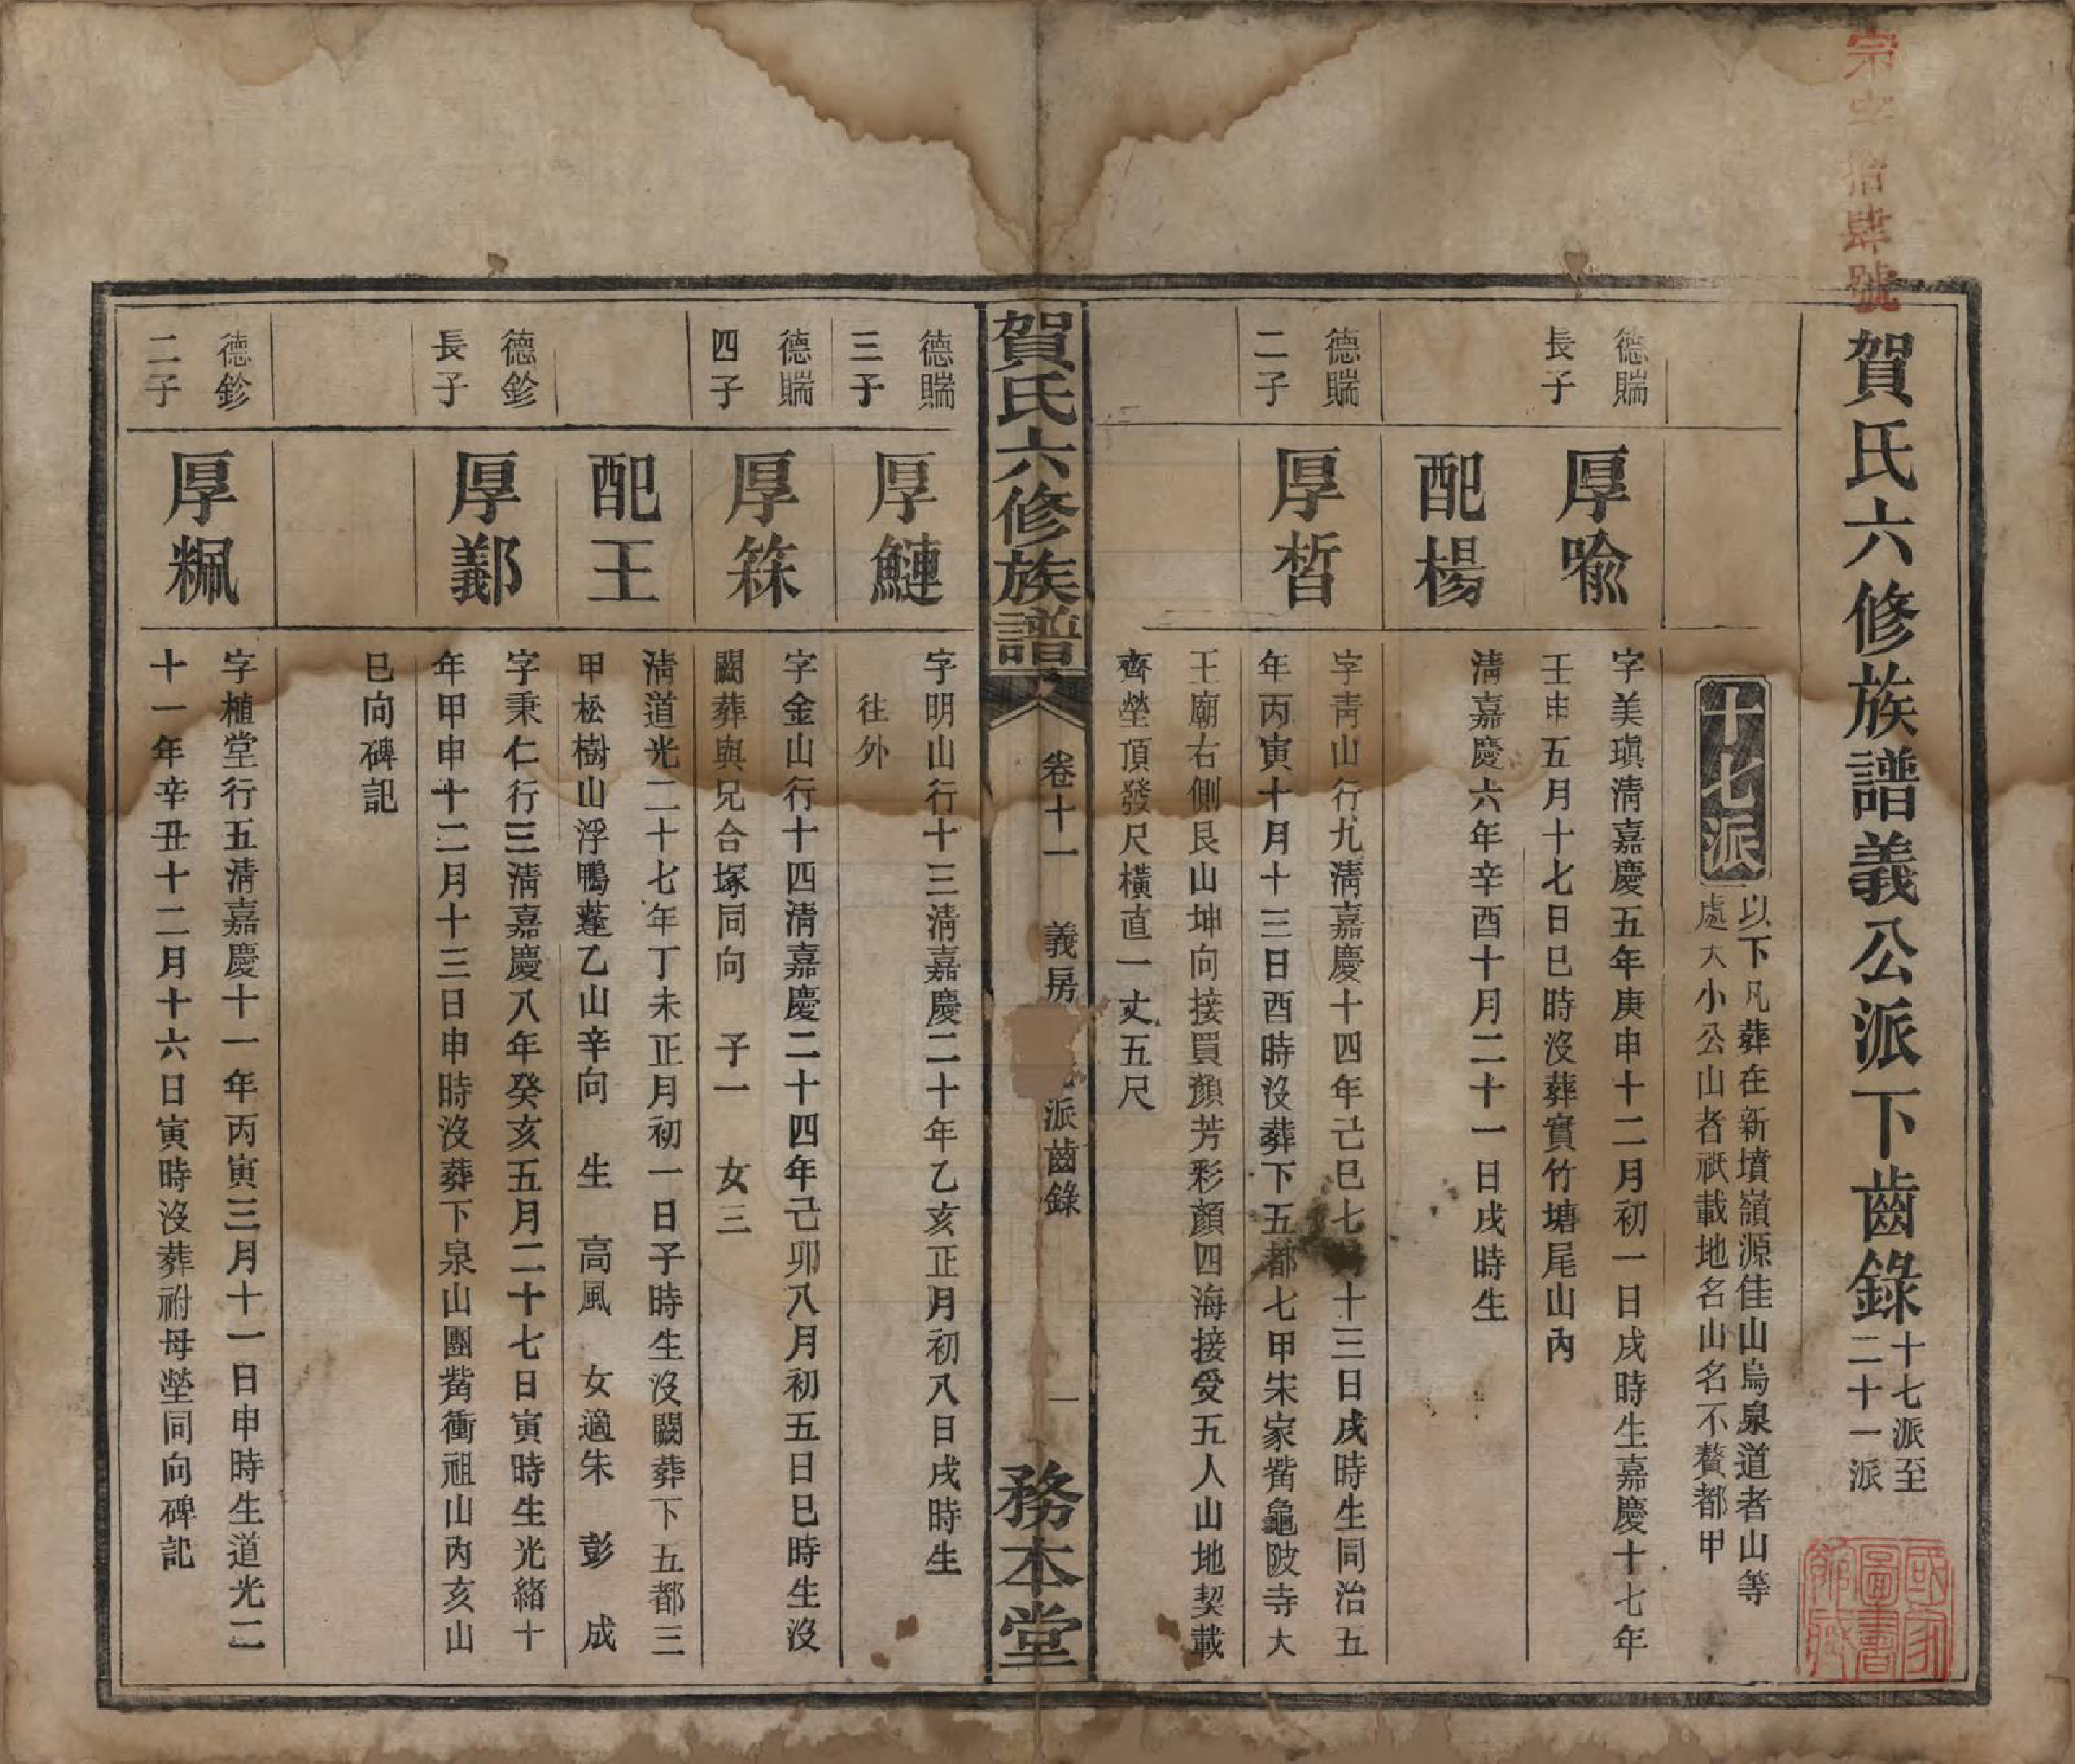 宗字拾肆號
賀氏六修族譜義公派下齒錄
十七派至
二十一派
十七派
以下凡葬在新墳嶺源佳山烏泉道者山等
處大小公山者祇載地名山名不贅都甲
德䝹
長子
厚喻
字美瑱淸嘉慶五年庚申十二月初一日戌時生嘉慶十七年
壬申五月十七日巳時沒葬實竹塘尾山內
配楊
淸嘉慶六年辛酉十月二十一日戌時生
德䝹
二子
厚晳
字靑山行九淸嘉慶十四年己巳七 十三日戌時生同治五
年丙寅十月十三日酉時沒葬下五都七甲朱家嘴龜陂寺大
王廟右側艮山坤向接買顏芳彩顏四海接受五人山地契載
齊塋頂發尺橫直一丈五尺
賀氏六修族譜
卷十一
義房 派齒錄
一
務本堂
德䝹
三子
厚鰱
字明山行十三淸嘉慶二十年乙亥正月初八日戌時生
往外
德䝹
四子
厚箖
字金山行十四淸嘉慶二十四年己卯八月初五日巳時生沒
闕葬與兄合塚同向 子一 女三
配王
淸道光二十七年丁未正月初一日子時生沒闕葬下五都三
甲松樹山浮鴨薘乙山辛向 生 高風 女適朱 彭 成
德鉁
長子
厚鄯
字秉仁行三淸嘉慶八年癸亥五月二十七日寅時生光緒十
年甲申十二月十三日申時沒葬下泉山團嘴衝祖山內亥山
巳向碑記
德鉁
二子
厚𥻘
字植堂行五淸嘉慶十一年丙寅三月十一日申時生道光二
十一年辛丑十二月十六日寅時沒葬祔母塋同向碑記
國家圖書館藏